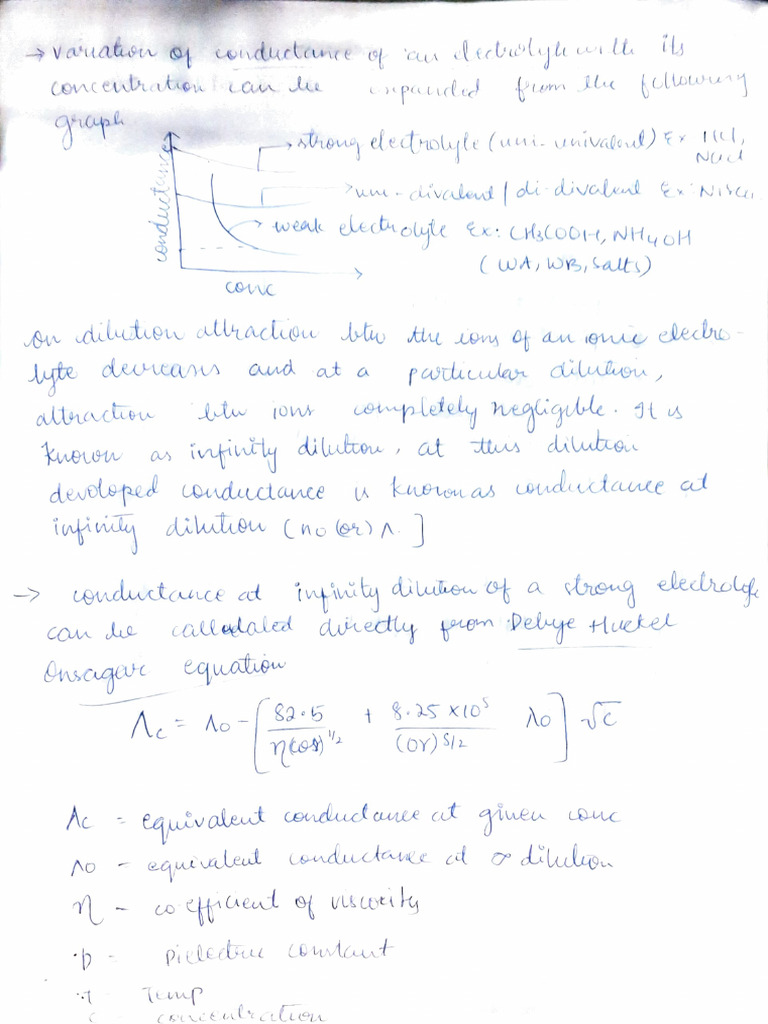 → variation of conductance of an electrolyte with its
concentration can be expanded from the following
graph
conductance
→ strong electrolyte (uni-univalent) Ex HCl,
NaCl
→ uni-divalent / di-divalent Ex: NiSO4
→ weak electrolyte Ex: CH3COOH, NH4OH
(WA, WB, Salts)
conc
on dilution attraction btw the ions of an ionic electro-
lyte decreases and at a particular dilution,
attraction btw ions completely negligible. It is
known as infinity dilution, at this dilution
devoloped conductance is known as conductance at
infinity dilution (Λo (or) Λ. ]
→ conductance at infinity dilution of a strong electrolyte
can be calculated directly from Debye Huckel
Onsagar equation
Λc = Λo - [ 82.5 / η( )^1/2 + 8.25 × 10^5 / ( )^3/2 Λo ] √c
Λc = equivalent conductance at given conc
Λo - equivalent conductance at ∞ dilution
η - coefficient of viscocity
D - Dielectric constant
T - Temp
c - concentration